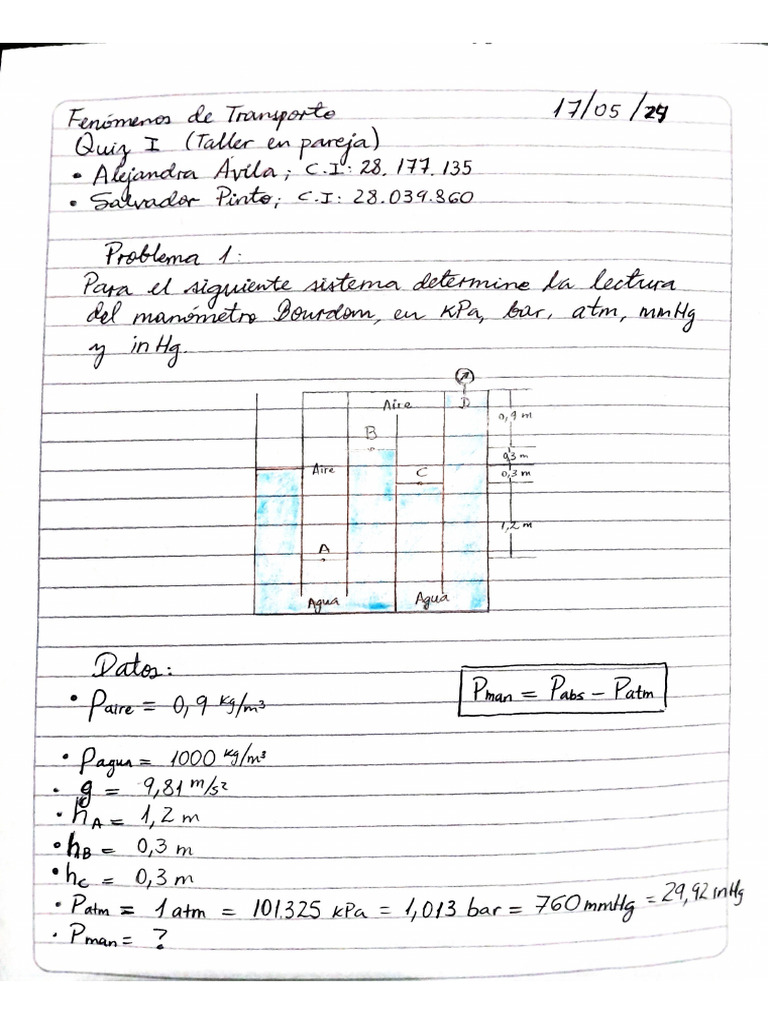 Fenómenos de Transporte 17/05/24
Quiz I (Taller en pareja)
• Alejandra Ávila; C.I: 28.177.135
• Salvador Pinto; C.I: 28.039.860
Problema 1:
Para el siguiente sistema determine la lectura
del manómetro Bourdom, en kPa, bar, atm, mmHg
y inHg.
Aire
D
0,9 m
B
0,3 m
Aire
C
0,3 m
1,2 m
A
Agua
Agua
Datos:
Pman = Pabs - Patm
• ρaire = 0,9 kg/m³
• ρagua = 1000 kg/m³
• g = 9,81 m/s²
• hA = 1,2 m
• hB = 0,3 m
• hc = 0,3 m
• Patm = 1 atm = 101.325 kPa = 1,013 bar = 760 mmHg = 29,92 inHg
• Pman = ?